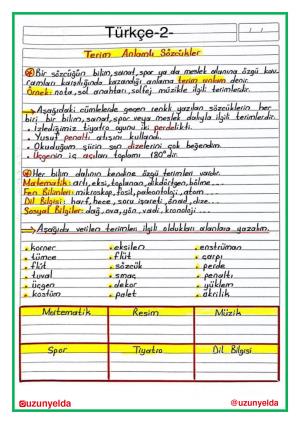 Türkçe-2-
Terim Anlamlı Sözcükler
Bir sözcüğün bilim, sanat, spor ya da meslek alanına özgü kav-
ramları karşılığında kazandığı anlama terim anlam denir.
Örnek: nota, sol anahtarı, solfej müzikle ilgili terimlerdir.
Aşağıdaki cümlelerde geçen renkli yazılan sözcüklerin her
biri bir bilim, sanat, spor veya meslek dalıyla ilgili terimlerdir.
• İzlediğimiz tiyatro oyunu iki perdelikti.
• Yusuf penaltı atışını kullandı.
• Okuduğum şiirin son dizelerini çok beğendim.
• Üçgenin iç açıları toplamı 180°dir.
Her bilim dalının kendine özgü terimleri vardır.
Matematik: artı, eksi, toplanan, dikdörtgen, bölme...
Fen Bilimleri: mikroskop, fosil, paleontoloji, atom...
Dil Bilgisi: harf, hece, soru işareti, öznel, dize...
Sosyal Bilgiler: dağ, ova, yön, vadi, kronoloji...
Aşağıda verilen terimleri ilgili oldukları alanlara yazalım.
• korner • eksilen • enstrüman
• tümce • flüt • çarpı
• flüt • sözcük • perde
• tuval • smaç • penaltı
• üçgen • dekor • yüklem
• kostüm • palet • akrilik
Matematik Resim Müzik
Spor Tiyatro Dil Bilgisi
@uzunyelda @uzunyelda